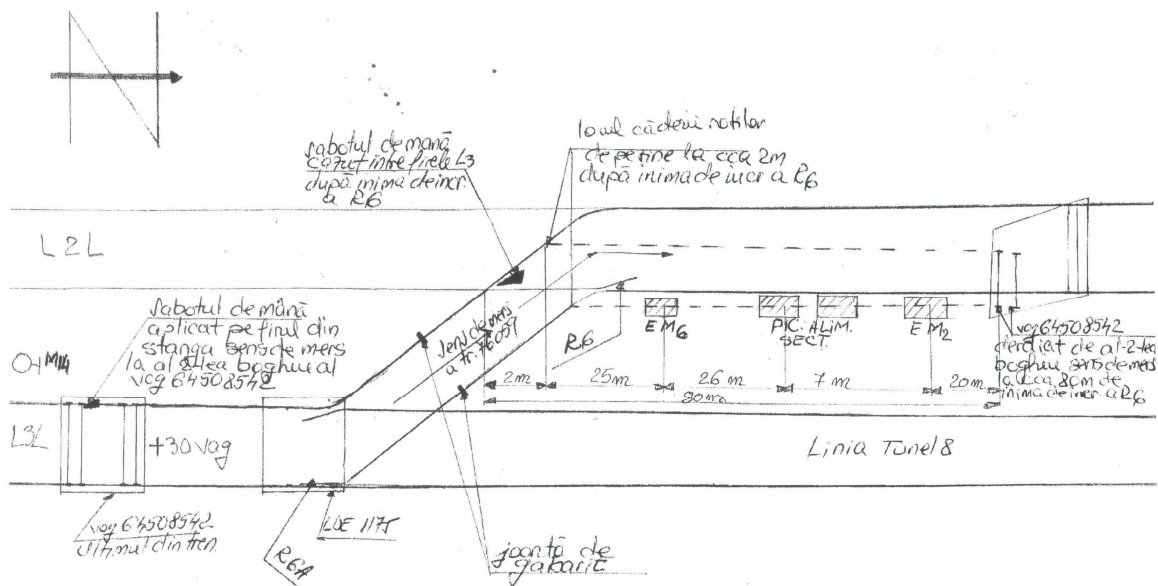 sabotul de mană
cazut intre firele L3
după inima de incr.
a R6
locul căderii roților
de pe șine la cca 2m
după inima de incr a R6
L2L
sabotul de mână
aplicat pe firul din
stanga sens de mers
la al 2-lea boghiu al
vag 64508542
sens de mers
a tr.
R6
EM6
PIC. ALIM.
SECT.
EM2
vag 64508542
deraiat de al-2-lea
boghiu sens de mers
a cca 80m de
inima de incr. a R6
2m
25m
26 m
7 m
20m
80m
L3L
+30 vag
Linia Tunel 8
vag 64508542
ultimul din tren
R6A
LDE 1175
joantă de
gabarit